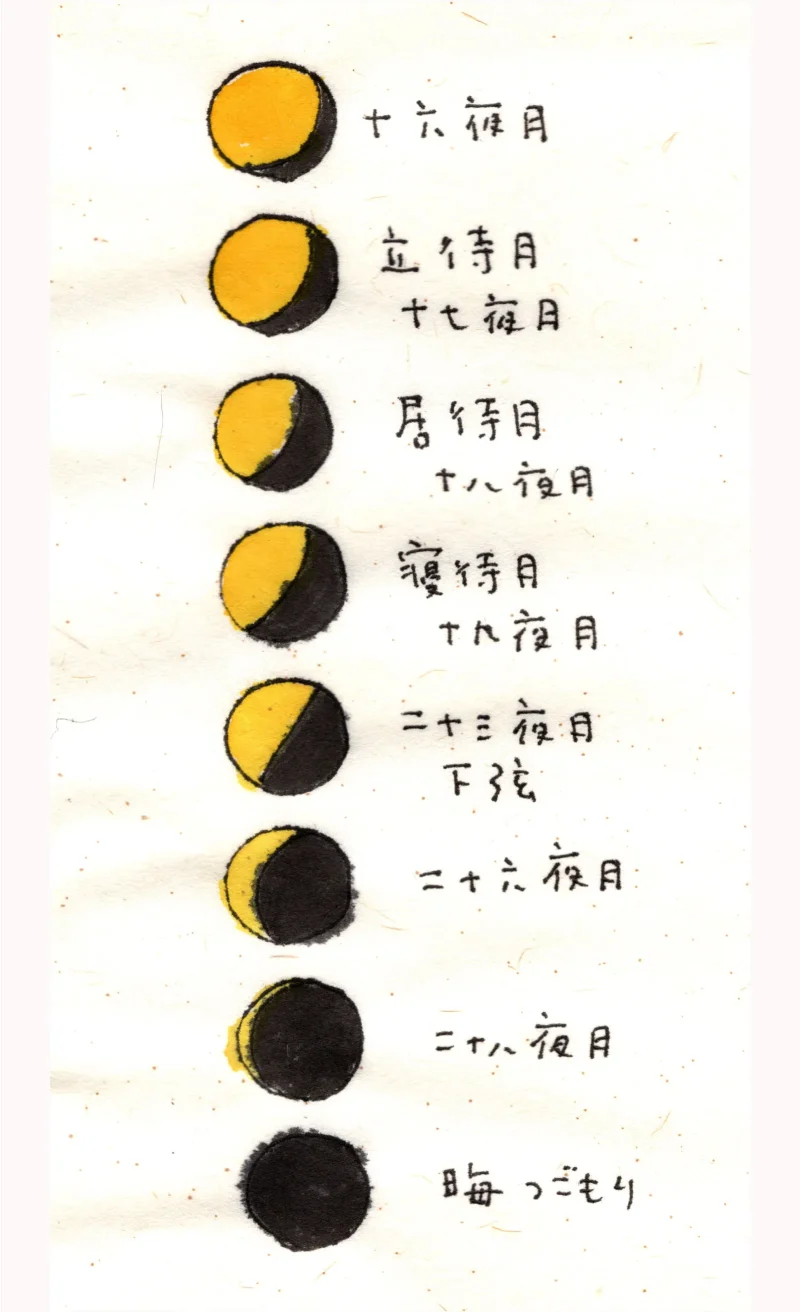 十六夜月
立待月
十七夜月
居待月
十八夜月
寝待月
十九夜月
二十三夜月
下弦
二十六夜月
二十八夜月
晦 つごもり